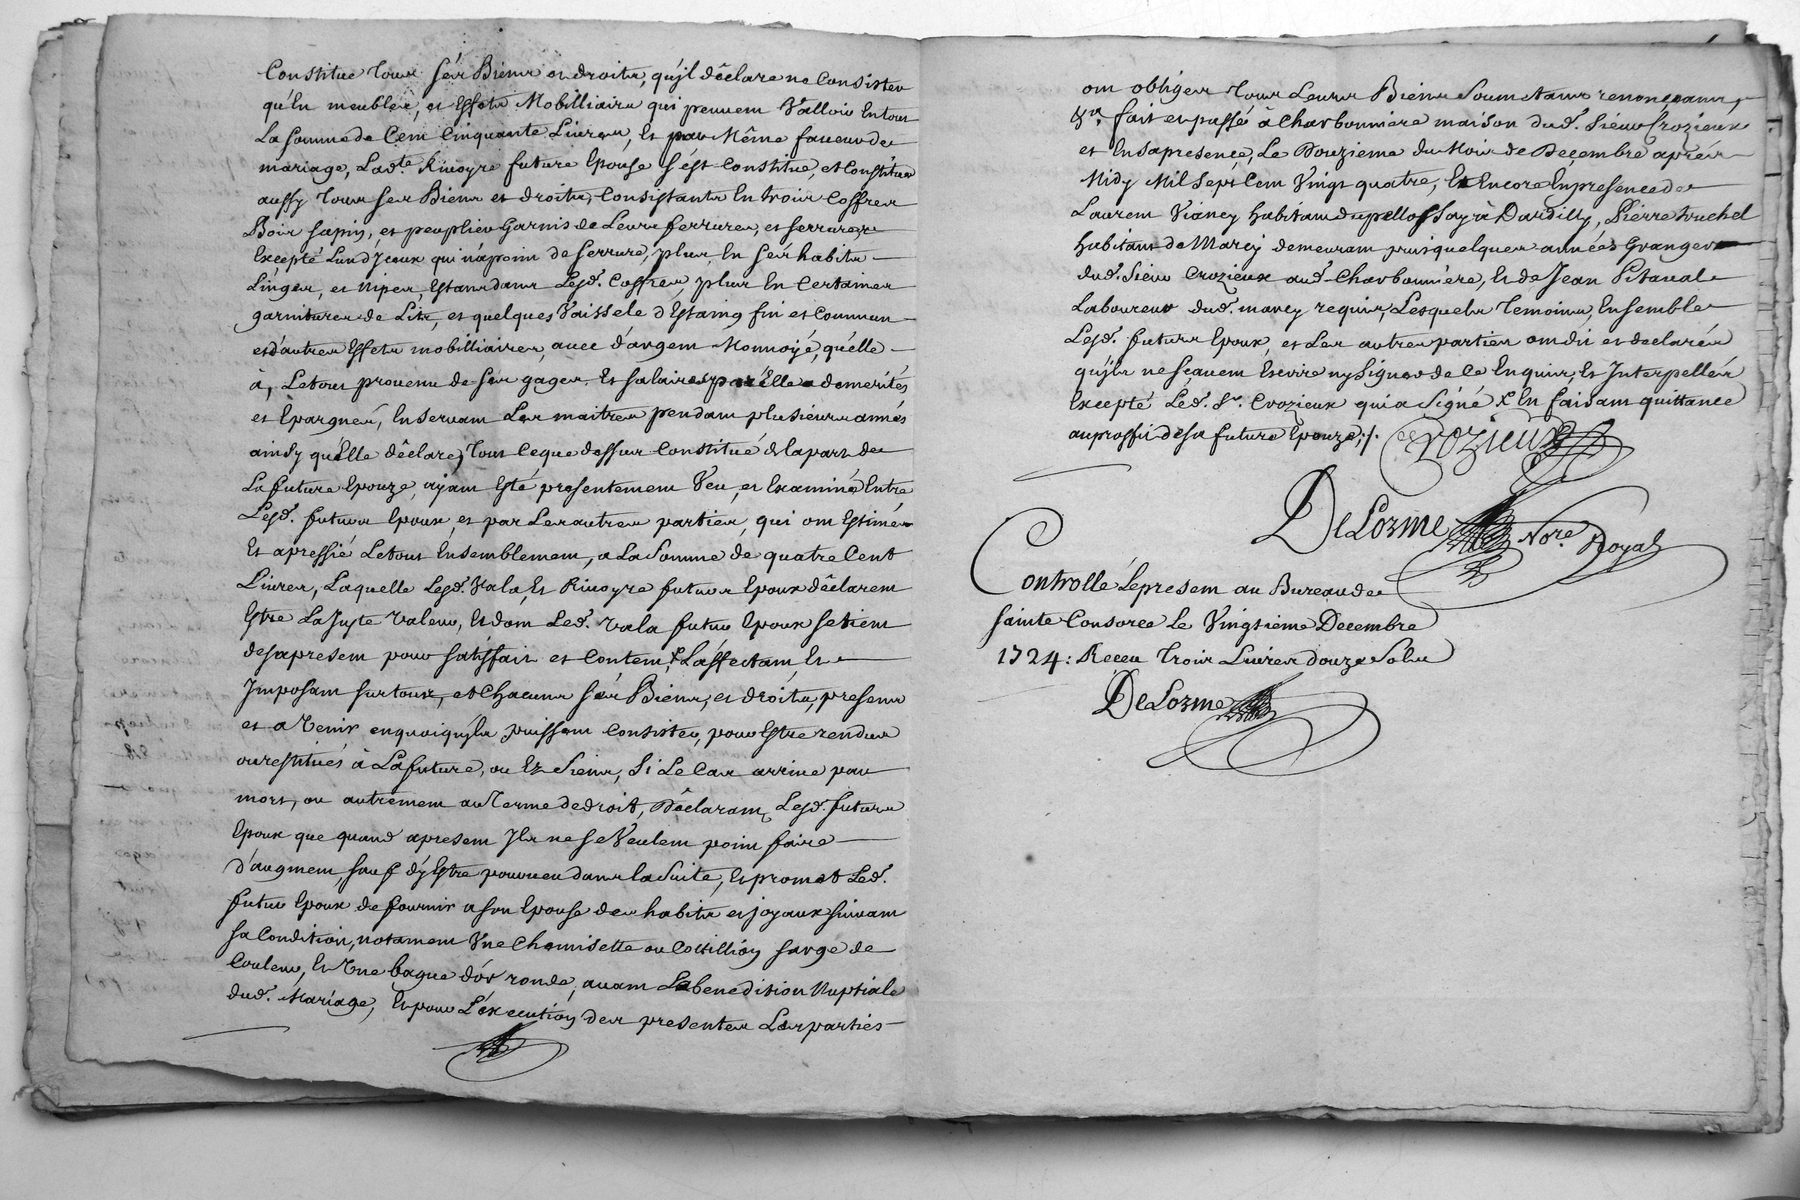 Constitue tous sés Biens et droits, qu'jl dêclare ne Consister
qu'En meubles, et Effets Mobilliaire qui peuuent Valloir En tout
La somme de Cent Cinquante Liures, Et par Même faueur de
mariage, Lad.te Riuoyre future Epouse s'ést Constitué, et Constitue
aussy tous ses Biens et droits, Consistants En trois Coffres
Bois sapin, et peuplier Garnis de Leurs ferrures, et serrures,
Excepté L'un d'Jceux qui n'á point de serrure, plus En sés habits
Linges, et Nipes, Estans dans Lesd. Coffres, plus En Certaines
garnitures de Lits, et quelques Vaissele d'Estaing fin et Commun
et d'autres Effets mobilliaires, auec d'argent Monnoyé, qu'élle
à, Le tout prouenu de ses gages Et salaires par Elle demerités
et Epargnés, En seruant Les maitres pendant plusieurs annés
ainsy qu'Elle dêclare, Tout Ceque dessus Constitué de la part de
La future Epouze, ayant Esté presentement Veu, et Examiné Entre
Lesd. futurs Epoux, et par Les autres parties, qui ont Estimés
Et apressié Le tout Ensemblement, a La Somme de quatre Cent
Liures, Laquelle Lesd. Vala, Et Riuoyre futurs Epoux dêclarent
Estre La Juste Valeur, Et dont Led. Vala futur Epoux se tient
des apresent pour satisfait et Content, L'affectant, Et
Jmposant sur tous, et Chacuns sés Biens, et droits, presens
et a Venir en quoi qu'jls puissent Consister, pour Estre rendus
ou restitués à La future, ou Ez Siens, Si Le Cas arriue par
mort, ou autrement au Terme de droit, Dêclarant, Lesd. futurs
Epoux que quand apresent Jls ne se Veulent point faire
d'augment, sauf d'ÿ Estre pourueu dans la Suite, Et promet Led.
futur Epoux de fournir a son Epouse des habits et joyaux suiuant
sa Condition, notament Vne Chemisette ou Cottillion sarge de
Couleur, Et Vne bague d'ór ronde, auant La benedition Nuptiale
dud. Mariage, Et pour L'éxecution des presentes Les parties
ont obliges tous Leurs Biens Soumetans renonceans,
&a. fait et passé à Charbonniere maison dud. Sieur Crozieux
et En sa presence, Le Douzieme du Mois de Decembre aprés
Midy Mil Sept Cent Vingt quatre, Et Encore En presence de
Laurent Vianey habitant du pellossay à Dardilly, Pierre truchet
habitant de Marcy demeurant puis quelques années Granger
dud. Sieur Crozieux aud. Charbonniére, Et de Jean Pitaval
Laboureur dud. marcy requis, Lesquels Temoins, Ensemble
Lesd. futurs Epoux, et Les autres parties ont dit et declarés
qu'jls ne sçauent Escrire ny Signer de Ce Enquis, Et Interpellés
Excepté Led. Sr. Crozieux qui a Signé En faisant quittance
au proffit de sa future Epouze,./.
Crozieux
DeLorme Nore. Royal
Controllé Le present au Bureau de
sainte Consorce le Vingtieme Decembre
1724: Receu trois Liures douze Sols
DeLorme